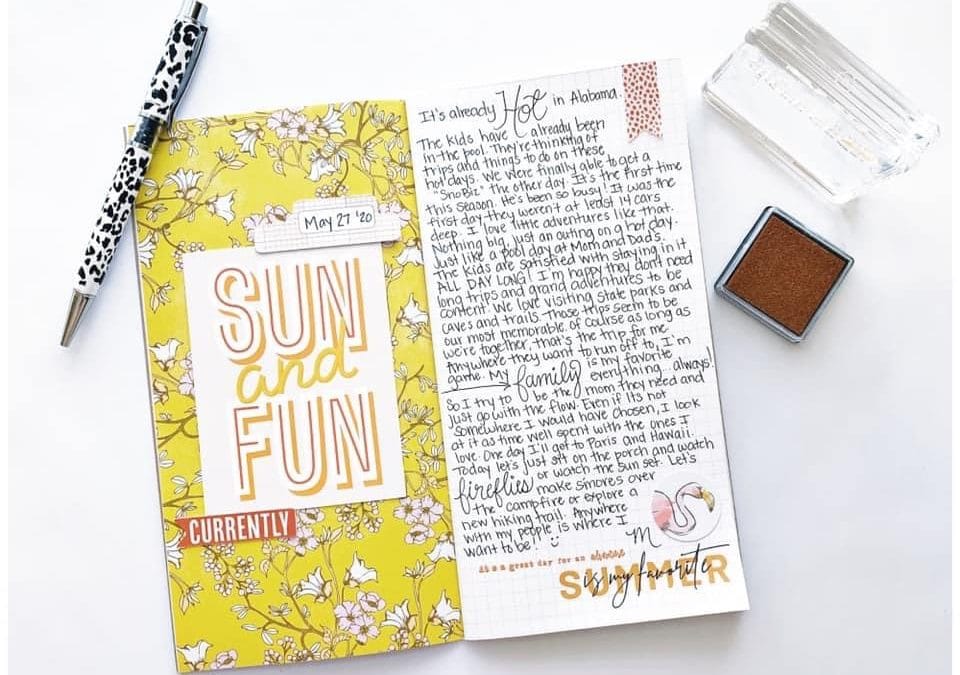 May 27 '20
SUN
and
FUN
CURRENTLY
It's already Hot in Alabama.
The kids have already been
in the pool. They're thinking of
trips and things to do on these
hot days. We were finally able to get a
"SnoBiz" the other day. It's the first time
this season. He's been so busy! It was the
first day they weren't at least 14 cars
deep. I love little adventures like that.
Nothing big, just an outing on a hot day.
Just like a pool day at Mom and Dad's.
The kids are satisfied with staying in it
ALL DAY LONG! I'm happy they don't need
long trips and grand adventures to be
content. We love visiting state parks and
caves and trails. Those trips seem to be
our most memorable. Of course as long as
we're together, that's the trip for me.
Anywhere they want to run off to, I'm
game. My family is my favorite
everything... always!
So I try to be the mom they need and
just go with the flow. Even if it's not
somewhere I would have chosen, I look
at it as time well spent with the ones I
love. One day I'll get to Paris and Hawaii.
Today let's just sit on the porch and watch
fireflies or watch the sun set. Let's
make s'mores over
the campfire or explore a
new hiking trail. Anywhere
with my people is where I
want to be!
M
it's a great day for an adventure
SUMMER
is my favorite